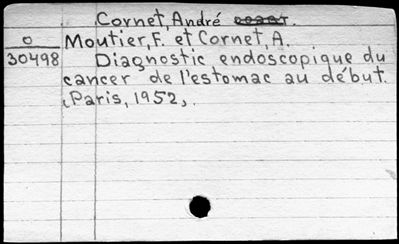 Cornet, André
o Moutier, F. et Cornet, A.
30498 Diagnostic endoscopique du
cancer de l'estomac au début.
(Paris, 1952).